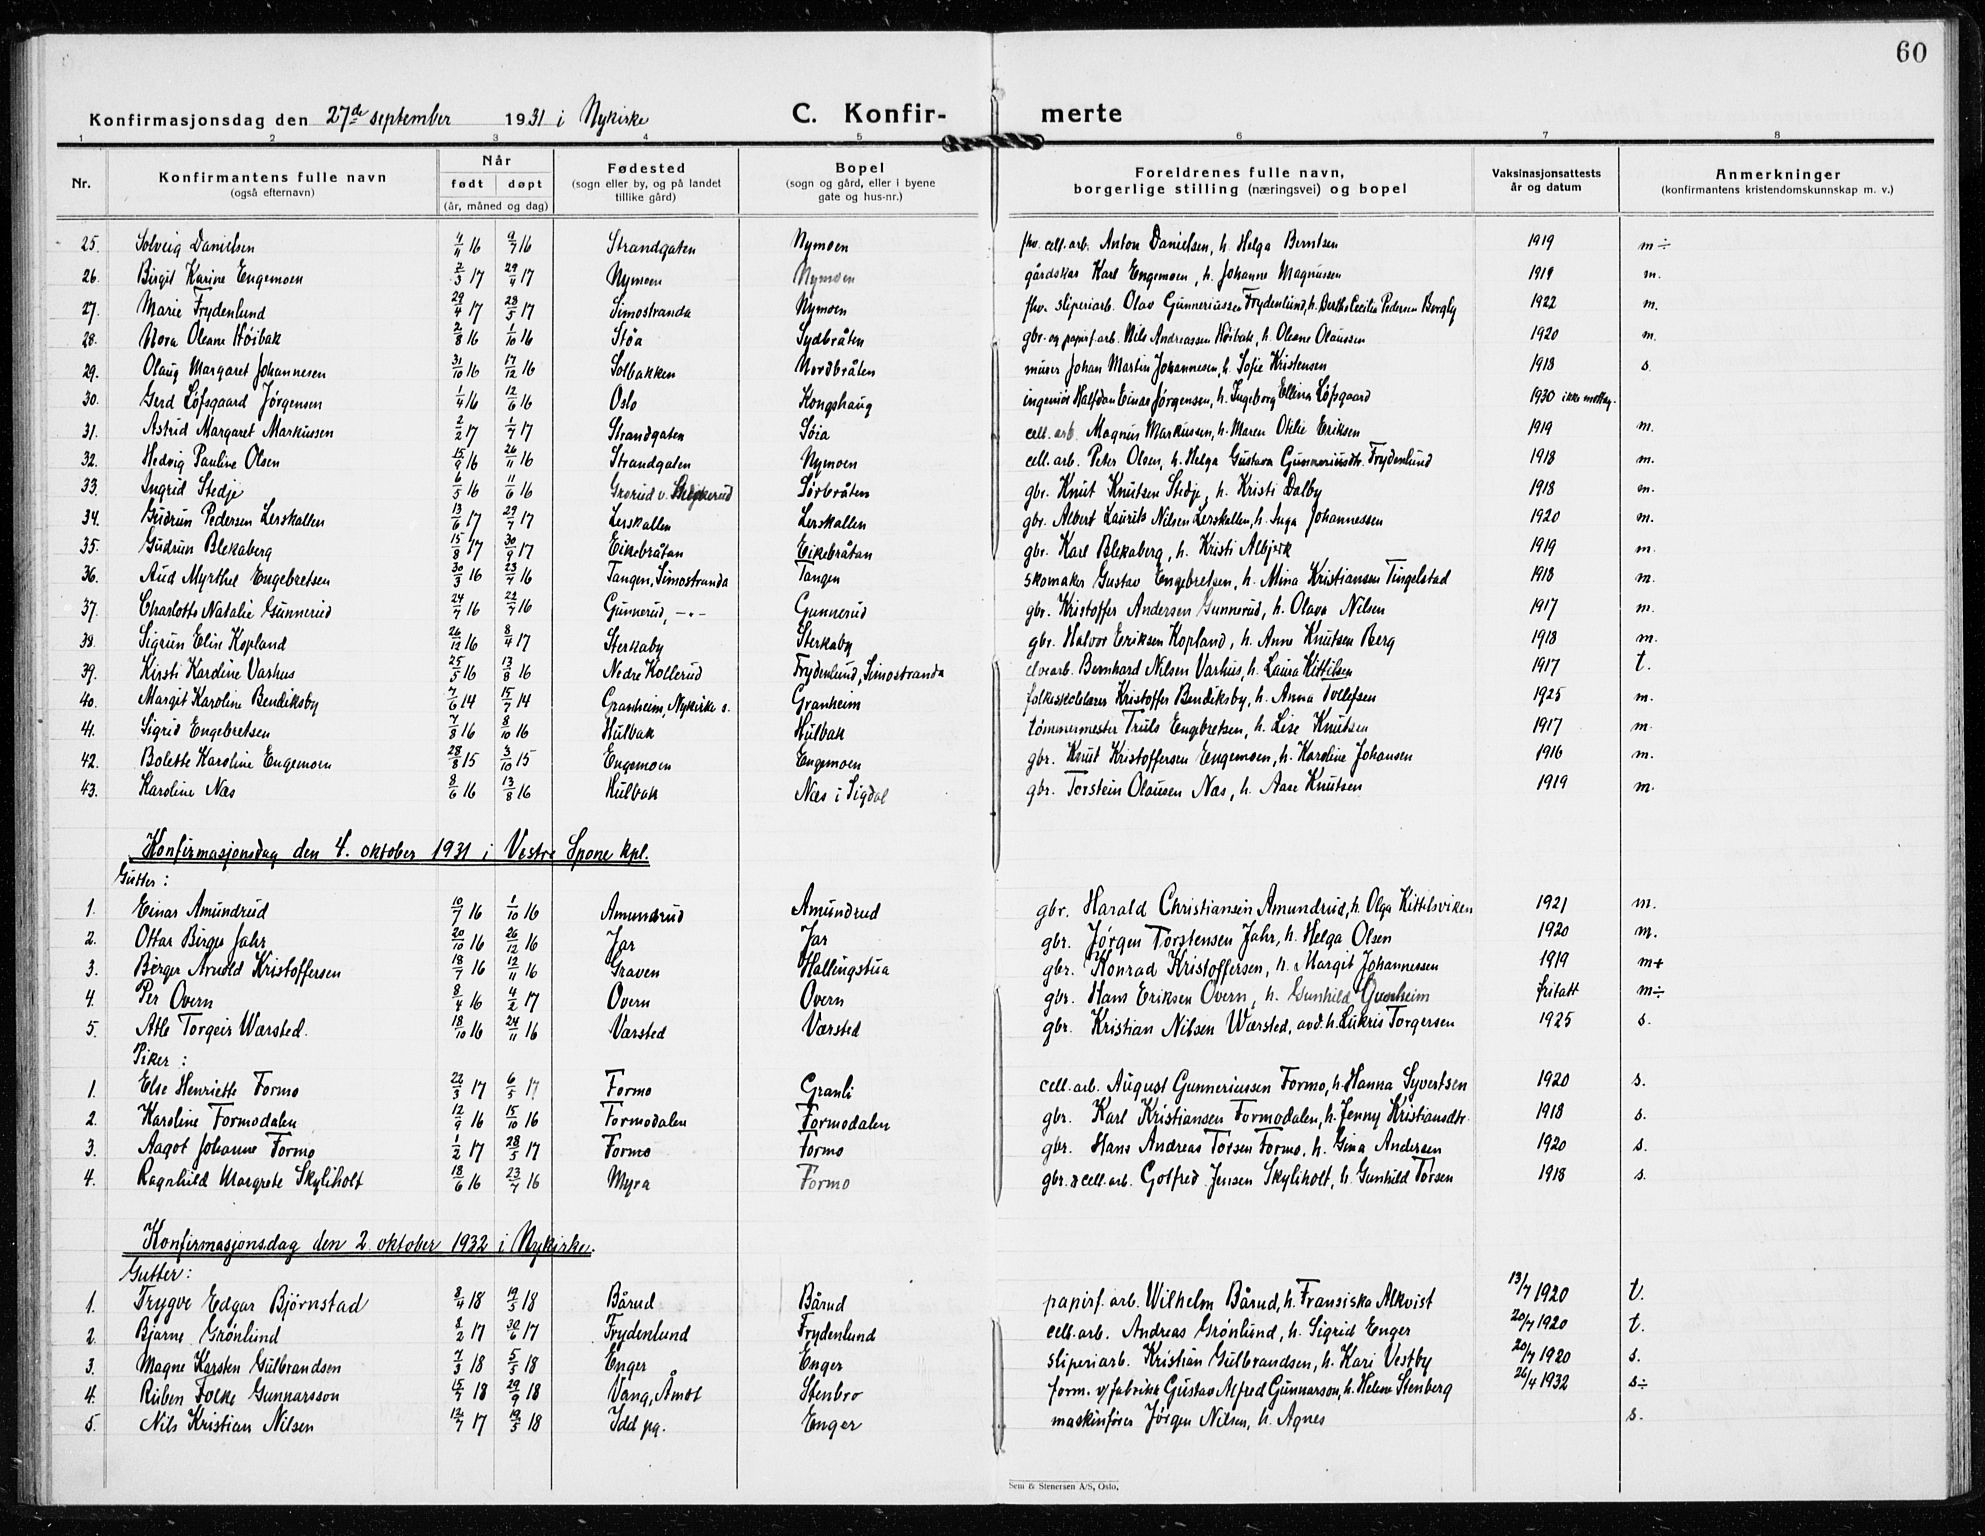 60
Konfirmasjonsdag den 27de september 1931 i Nykirke C. Konfir- merte
1 2 3 4 5 6 7 8
Nr. Konfirmantens fulle navn (også efternavn) Når født døpt (år, måned og dag) Fødested (sogn eller by, og på landet tillike gård) Bopel (sogn og gård, eller i byene gate og hus-nr.) Foreldrenes fulle navn, borgerlige stilling (næringsvei) og bopel Vaksinasjonsattests år og datum Anmerkninger (konfirmantens kristendomskunnskap m. v.)
25. Solveig Danielsen 4/4 16 9/7 16 Strandgaten Nymoen fhv. cell. arb. Anton Danielsen, h. Helga Berntsen 1919 m÷
26. Birgit Karine Engemoen 2/3 17 29/4 17 Nymoen Nymoen gårdskar Karl Engemoen, h. Johanne Magnussen 1919 m.
27. Marie Frydenlund 29/4 17 28/5 17 Simostranda Nymoen fhv. sliperiarb. Olav Gunneriussen Frydenlund, h. Berthe Cecilie Pedersen Borgly 1922 m.
28. Nora Oleane Høibak 2/8 16 1/10 16 Støa Sydbråten gbr. og papirf. arb. Nils Andreassen Høibak, h. Oleane Olaussen 1920 m.
29. Olaug Margaret Johannesen 31/10 16 17/12 16 Solbakken Nordbråten murer Johan Martin Johannesen, h. Sofie Kristensen 1918 s.
30. Gerd Löfsgaard Jørgensen 1/4 16 12/6 16 Oslo Kongshaug ingeniør Halfdan Einar Jørgensen, h. Ingeborg Elling Löfsgaard 1930 ikke mottag.
31. Astrid Margaret Markussen 2/2 17 1/7 17 Strandgaten Søia cell. arb. Magnus Markussen, h. Maren Otilie Eriksen 1919 m.
32. Hedvig Pauline Olsen 15/9 16 26/11 16 Strandgaten Nymoen cell. arb. Peter Olsen, h. Helga Gustava Gunneriusdtr. Frydenlund 1918 m.
33. Ingrid Stedje 6/5 16 11/6 16 Grorud v. Sørbråten gbr. Knut Knutsen Stedje, h. Kristi Dalby 1918 m.
34. Gudrun Pedersen Lerskallen 13/6 17 29/7 17 Lerskallen Lerskallen gbr. Albert Laurits Nilsen Lerskallen, h. Inga Johannessen 1920 m.
35. Gudrun Blekaberg 15/8 17 30/9 17 Eikebråtan Eikebråtan gbr. Karl Blekaberg, h. Kristi Albjerk 1919 m.
36. Aud Myrthel Engebretsen 30/3 16 23/7 16 Tangen, Simostranda Tangen skomaker Gustav Engebretsen, h. Mina Kristiansen Tingelstad 1918 m.
37. Charlotte Natalie Gunnerud 24/7 16 16 Gunnerud, -"- Gunnerud gbr. Kristoffer Andersen Gunnerud, h. Olava Nilsen 1917 m.
38. Sigrun Elin Kopland 26/12 16 8/4 17 Sterkaby Sterkaby gbr. Halvor Eriksen Kopland, h. Anne Knutsen Berg 1918 m.
39. Kirsti Kardine Varhus 25/5 16 13/8 16 Nedre Kollerud Frydenlund, Simostranda elvearb. Bernhard Nilsen Varhus, h. Laura Kittilsen 1917 t.
40. Margit Karoline Bendiksby 7/6 14 15/7 14 Granheim, Nykirke s. Granheim folkeskolelærer Kristoffer Bendiksby, h. Anna Tollefsen 1925 m.
41. Sigrid Engebretsen 7/8 16 8/10 16 Hulbak Hulbak tømmermester Truls Engebretsen, h. Lise Knutsen 1917 m.
42. Bolette Karoline Engemoen 28/8 15 3/10 15 Engemoen Engemoen gbr. Knut Kristoffersen Engemoen, h. Karoline Johansen 1916 m.
43. Karoline Næs 8/6 16 13/8 16 Hulbak Næs i Sigdal gbr. Torstein Olausen Næs, h. Aase Knutsen 1919 m.
Konfirmasjonsdag den 4. oktober 1931 i Vestre Spone kpl.
Gutter:
1. Einar Amundrud 10/7 16 1/10 16 Amundrud Amundrud gbr. Harald Christiansein Amundrud, h. Olga Kittelsviken 1921 m.
2. Ottar Birger Jahr 20/10 16 26/12 16 Jar Jar gbr. Jørgen Torstensen Jahr, h. Helga Olsen 1920 m.
3. Birger Arnold Kristoffersen 18/7 16 12/11 16 Graven Hallingstua gbr. Konrad Kristoffersen, h. Margit Johannessen 1919 m+
4. Per Overn 8/4 16 4/2 17 Overn Overn gbr. Hans Eriksen Overn, h. Gunhild fritatt m÷
5. Atle Torgeir Wærsted. 18/10 16 24/11 16 Værsted Værsted gbr. Kristian Nilsen Wærsted, avd. h. Lukris Torgersen 1925 s.
Piker:
1. Else Henriette Formo 22/3 17 6/5 17 Formo Granli cell. arb. August Gunneriussen Formo, h. Hanna Syvertsen 1920 s.
2. Karoline Formodalen 12/9 16 15/10 16 Formodalen Formodalen gbr. Karl Kristiansen Formodalen, h. Jenny Kristiansdtr. 1918 s.
3. Aagot Johanne Formo 1/2 17 28/5 17 Formo Formo gbr. Hans Andreas Torsen Formo, h. Gina Andersen 1920 s.
4. Ragnhild Margrete Skyliholt 18/6 16 23/7 16 Myra Formo gbr. & cell. arb. Golfred Jensen Skyliholt, h. Gunhild Torsen 1918 s.
Konfirmasjonsdag den 2. oktober 1932 i Nykirke.
Gutter:
1. Trygve Edgar Bjørnstad 8/4 18 19/5 18 Bårud Bårud papirf. arb. Wilhelm Bårud, h. Fransiska Alkvist 13/7 1920 t.
2. Bjarne Grønlund 8/2 17 30/6 17 Frydenlund Frydenlund cell. arb. Andreas Grønlund, h. Sigrid Enger 20/7 1920 t.
3. Magne Karsten Gulbrandsen 7/3 18 5/5 18 Enger Enger sliperiarb. Kristian Gulbrandsen, h. Kari Vestby 20/7 1920 s.
4. Ruben Folke Gunnarsson 15/7 18 29/9 18 Vang, Åmot Stenbro form. v/ fabrikk Gustav Alfred Gunnarson, h. Helene Stenberg 26/4 1932 s÷
5. Nils Kristian Nilsen 12/7 17 19/5 18 Idd pg. Enger maskinfører Jørgen Nilsen, h. Agnes s.
Sem & Stenersen A/S, Oslo.